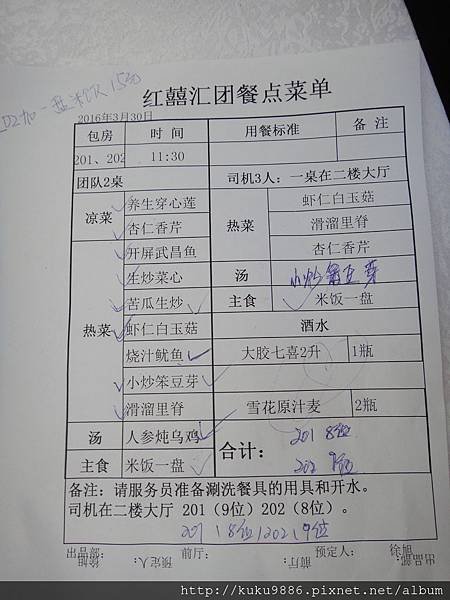 红囍汇团餐点菜单
2016年3月30日
包房 时间 用餐标准 备注
201、202 11:30
团队2桌 司机3人：一桌在二楼大厅
凉菜 养生穿心莲 热菜 虾仁白玉菇
杏仁香芹 滑溜里脊
热菜 开屏武昌鱼 杏仁香芹
生炒菜心 汤 小炒笨豆芽
苦瓜生炒 主食 米饭一盘
虾仁白玉菇 酒水
烧汁鱿鱼 大胶七喜2升 1瓶
小炒笨豆芽
滑溜里脊 雪花原汁麦 2瓶
汤 人参炖乌鸡 合计： 201 8位
主食 米饭一盘 202 9位
备注：请服务员准备涮洗餐具的用具和开水。
司机在二楼大厅 201（9位）202（8位）。
201 8位 202 9位
预定人： 前厅： 预定人： 徐旭
http://kuku9886.pixnet.net/album